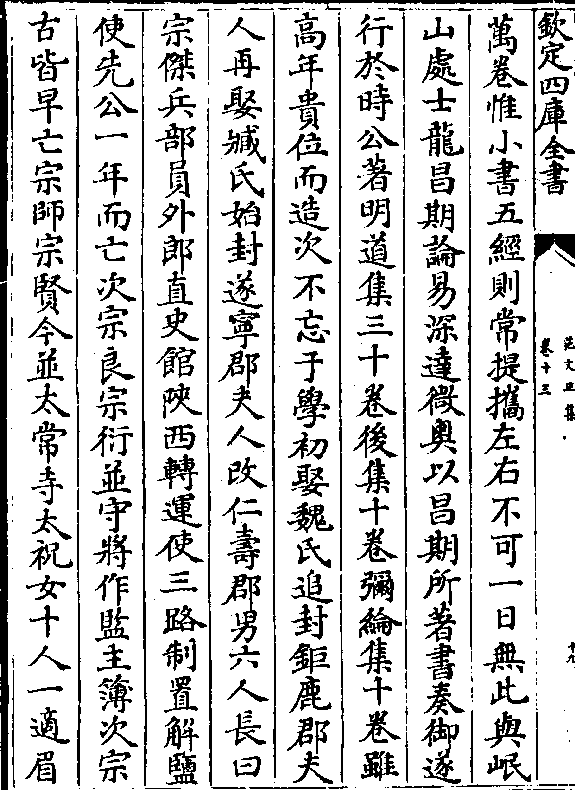 欽定四庫全書
范文正集
卷十三
十九
萬卷惟小書五經則常提攜左右不可一日無此與岷
山處士龍昌期論易深達微奧以昌期所著書奏御遂
行於時公著明道集三十卷後集十卷彌綸集十卷雖
高年貴位而造次不忘于學初娶魏氏追封鉅鹿郡夫
人再娶臧氏始封遂寧郡夫人改仁壽郡男六人長曰
宗傑兵部員外郎直史館陜西轉運使三路制置解鹽
使先公一年而亡次宗良宗衍並守將作監主簿次宗
古皆早亡宗師宗賢今並太常寺太祝女十人一適眉